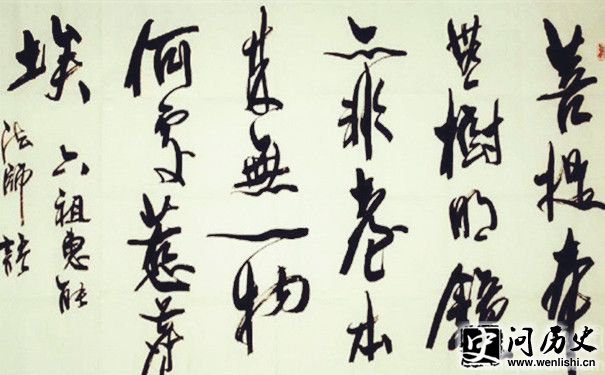 菩提本
無樹明鏡
亦非臺本
來無一物
何處惹塵
埃
六祖惠能
法師語
问历史
www.wenlishi.cn